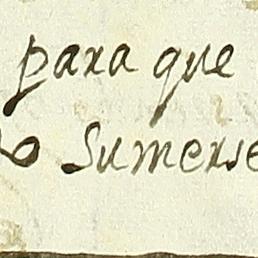 para que
Sumerse